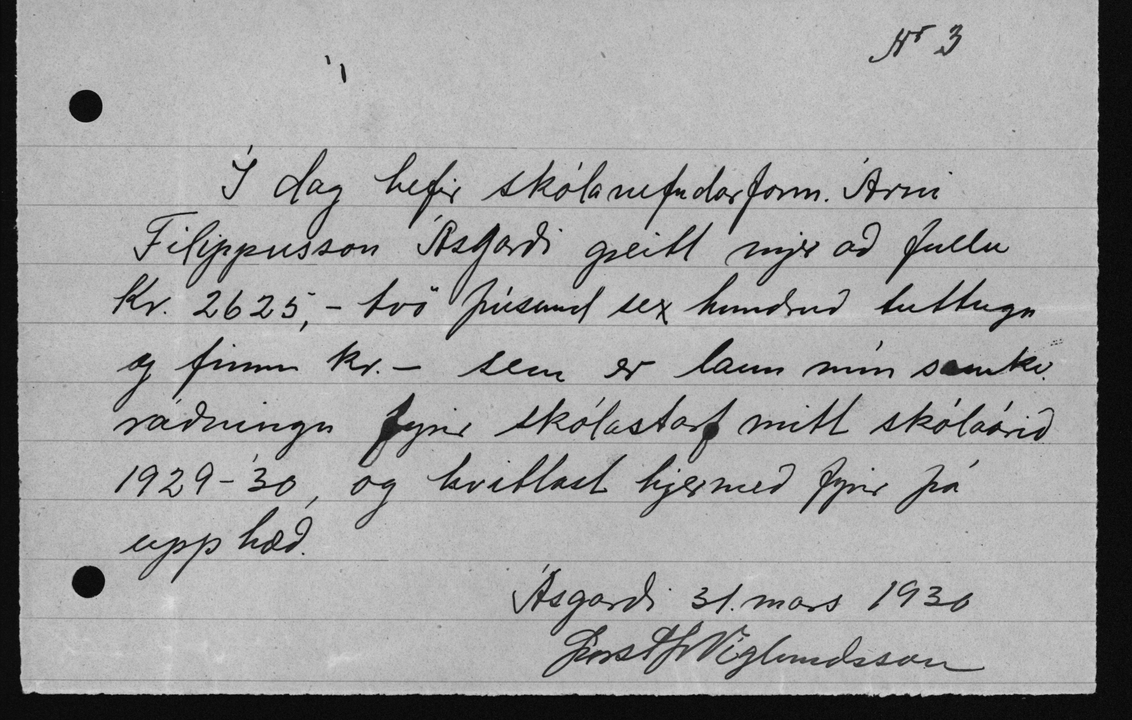 Nr 3
Í dag hefir skólanefndarform. Árni
Filippusson Ásgarði greitt mjer að fullu
kr. 2625,- tvö þúsund sex hundruð tuttugu
og fimm kr.- sem er laun mín samkv.
ráðningu fyrir skólastarf mitt skólaárið
1929-'30, og kvittast hjermeð fyrir þá
upphæð.
Ásgarði 31. mars 1930
Þorst Þ Víglundsson